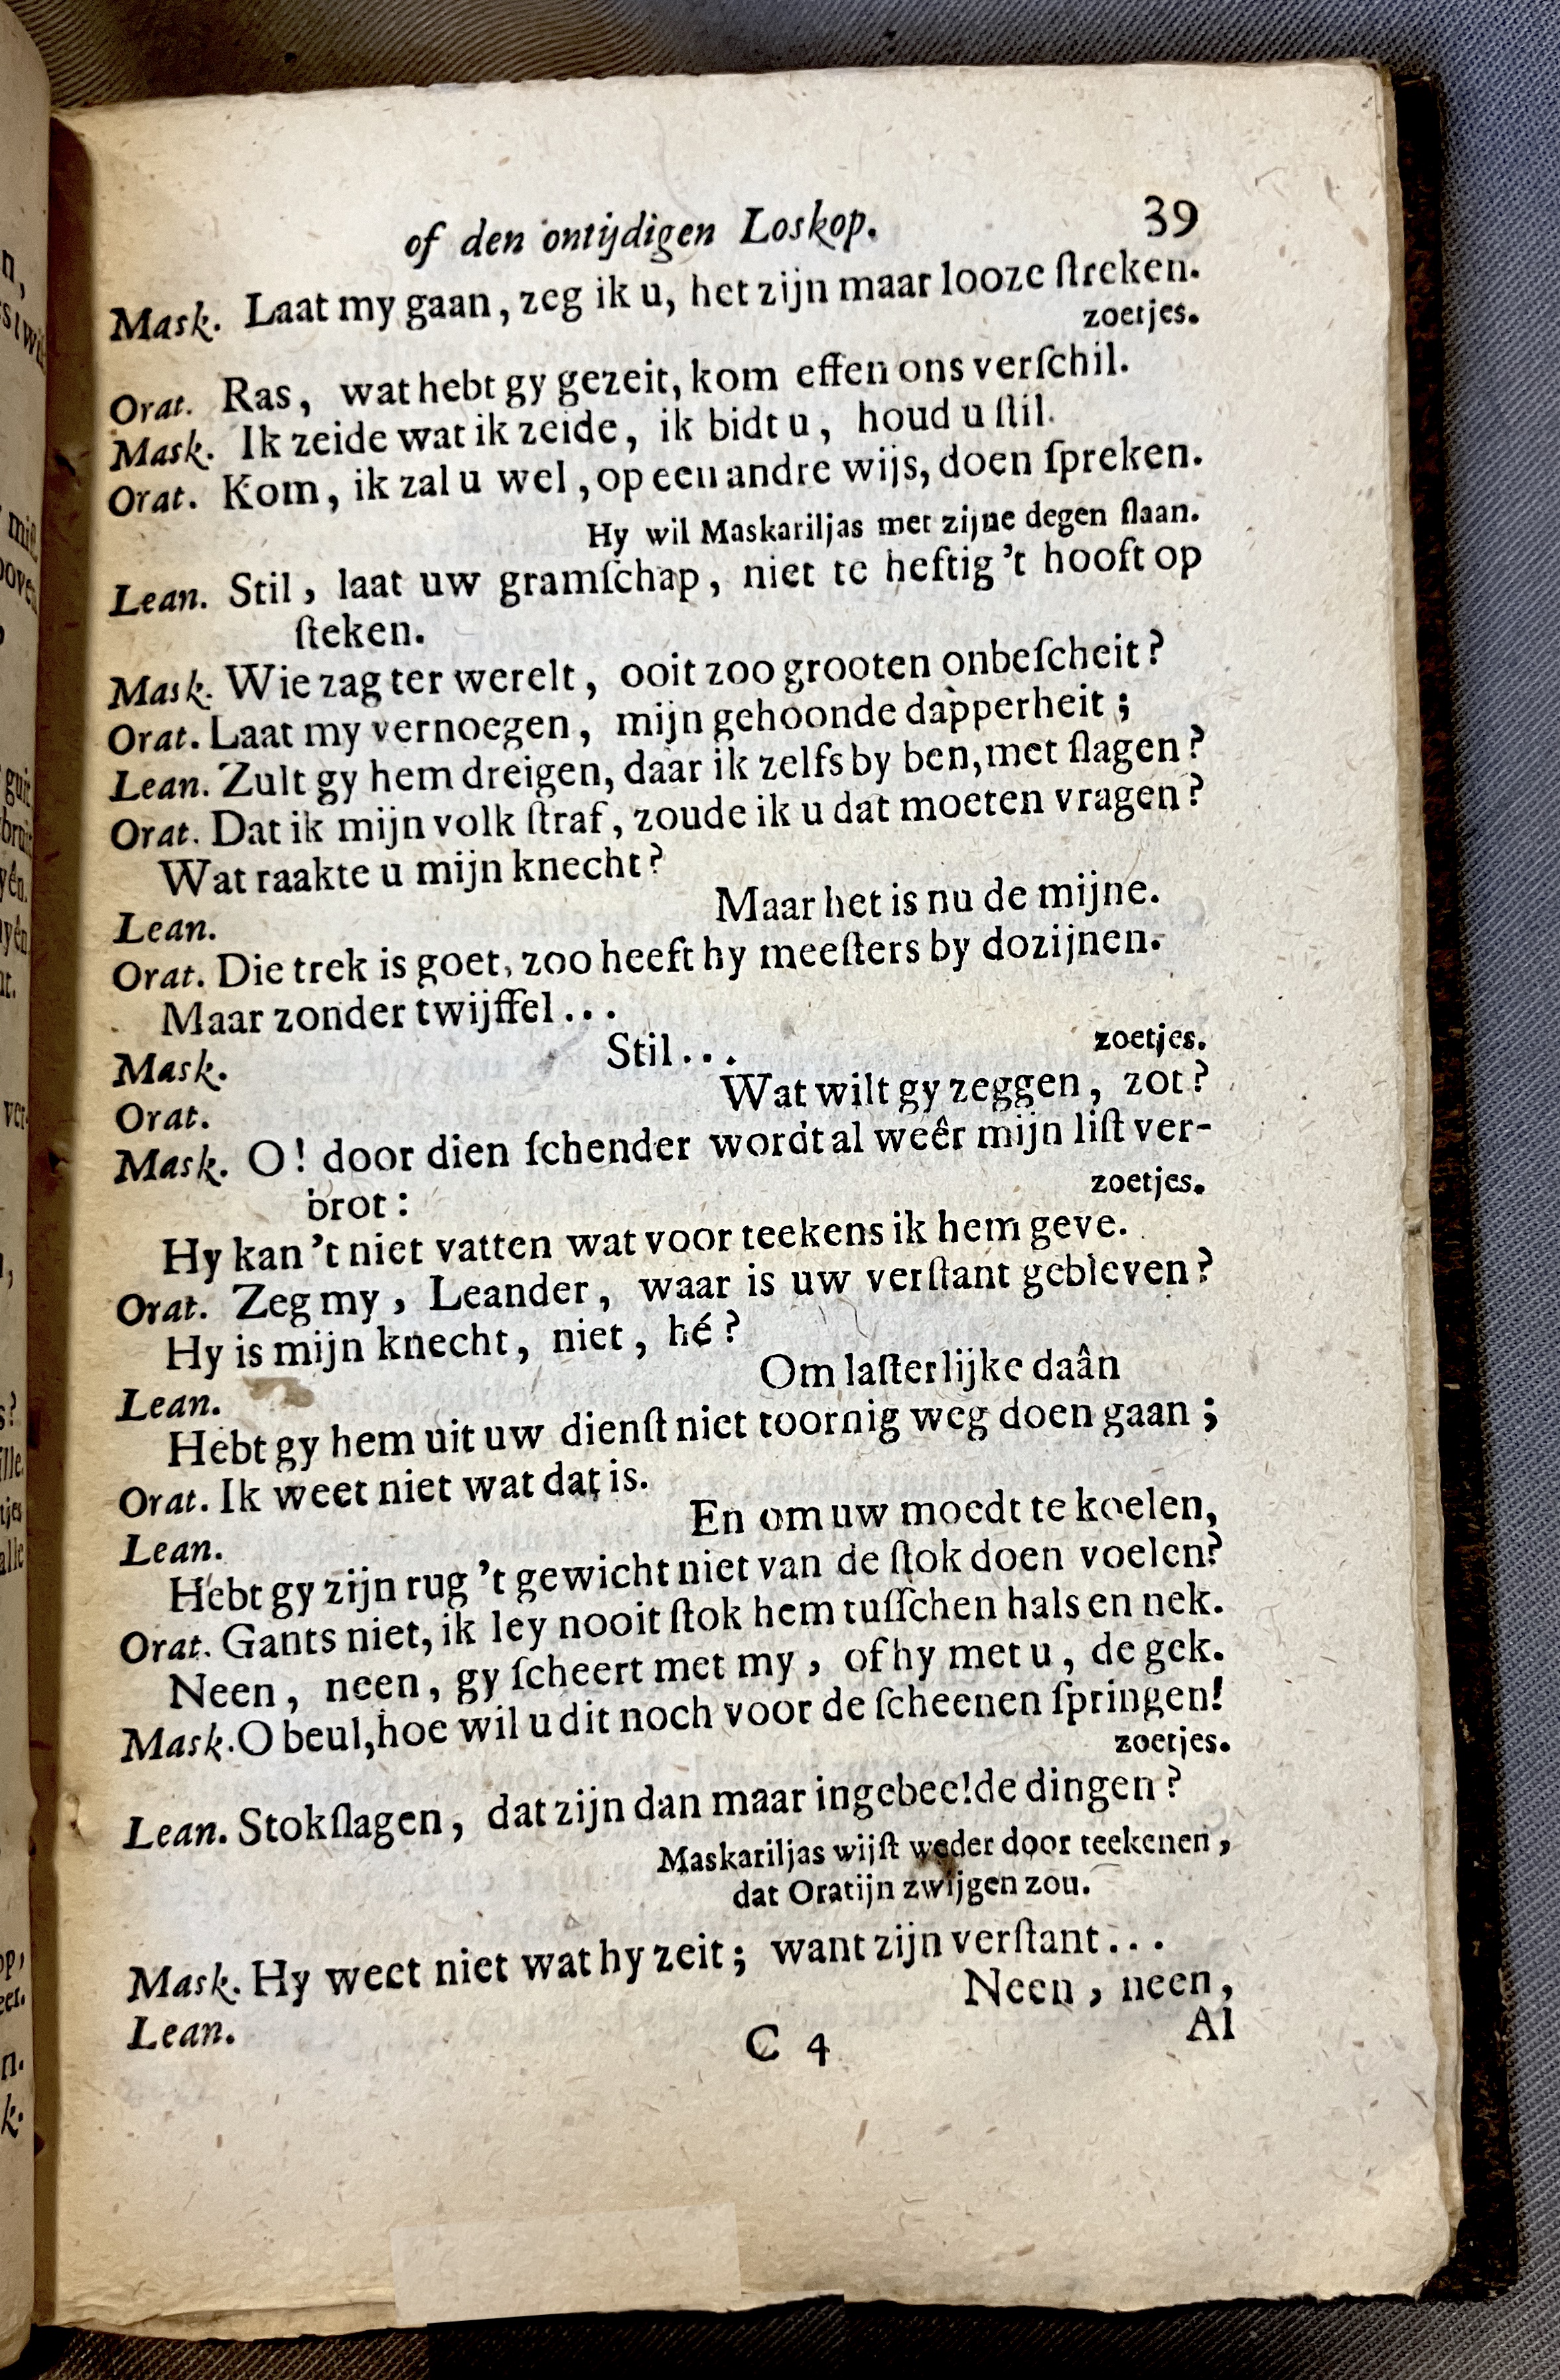 of den ontijdigen Loskop. 39
Mask. Laat my gaan, zeg ik u, het zijn maar looze ſtreken.
zoetjes.
Orat. Ras, wat hebt gy gezeit, kom effen ons verſchil.
Mask. Ik zeide wat ik zeide, ik bidt u, houd u ſtil.
Orat. Kom, ik zal u wel, op een andre wijs, doen ſpreken.
Hy wil Maskariljas met zijne degen ſlaan.
Lean. Stil, laat uw gramſchap, niet te heftig 't hooft op
ſteken.
Mask. Wie zag ter werelt, ooit zoo grooten onbeſcheit?
Orat. Laat my vernoegen, mijn gehoonde dapperheit;
Lean. Zult gy hem dreigen, daar ik zelfs by ben, met ſlagen?
Orat. Dat ik mijn volk ſtraf, zoude ik u dat moeten vragen?
Wat raakte u mijn knecht?
Lean. Maar het is nu de mijne.
Orat. Die trek is goet, zoo heeft hy meeſters by dozijnen.
Maar zonder twijffel...
Mask. Stil... zoetjes.
Orat. Wat wilt gy zeggen, zot?
Mask. O! door dien ſchender wordt al weêr mijn liſt ver-
brot: zoetjes.
Hy kan 't niet vatten wat voor teekens ik hem geve.
Orat. Zeg my, Leander, waar is uw verſtant gebleven?
Hy is mijn knecht, niet, hé?
Lean. Om laſterlijke daân
Hebt gy hem uit uw dienſt niet toornig weg doen gaan;
Orat. Ik weet niet wat dat is.
Lean. En om uw moedt te koelen,
Hebt gy zijn rug 't gewicht niet van de ſtok doen voelen?
Orat. Gants niet, ik ley nooit ſtok hem tuſſchen hals en nek.
Neen, neen, gy ſcheert met my, of hy met u, de gek.
Mask. O beul, hoe wil u dit noch voor de ſcheenen ſpringen!
zoetjes.
Lean. Stokſlagen, dat zijn dan maar ingebeelde dingen?
Maskariljas wijſt weder door teekenen,
dat Oratijn zwijgen zou.
Mask. Hy weet niet wat hy zeit; want zijn verſtant...
Lean. Neen, neen,
C 4 Al